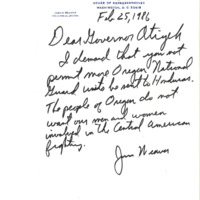 HOUSE OF REPRESENTATIVES
WASHINGTON, D.C. 20515
Feb 25, 1986
Dear Governor Atiyeh
I demand that you not
permit more Oregon National
Guard units be sent to Honduras.
The people of Oregon do not
want our men and women
involved in the Central American
fighting.
Jim Weaver